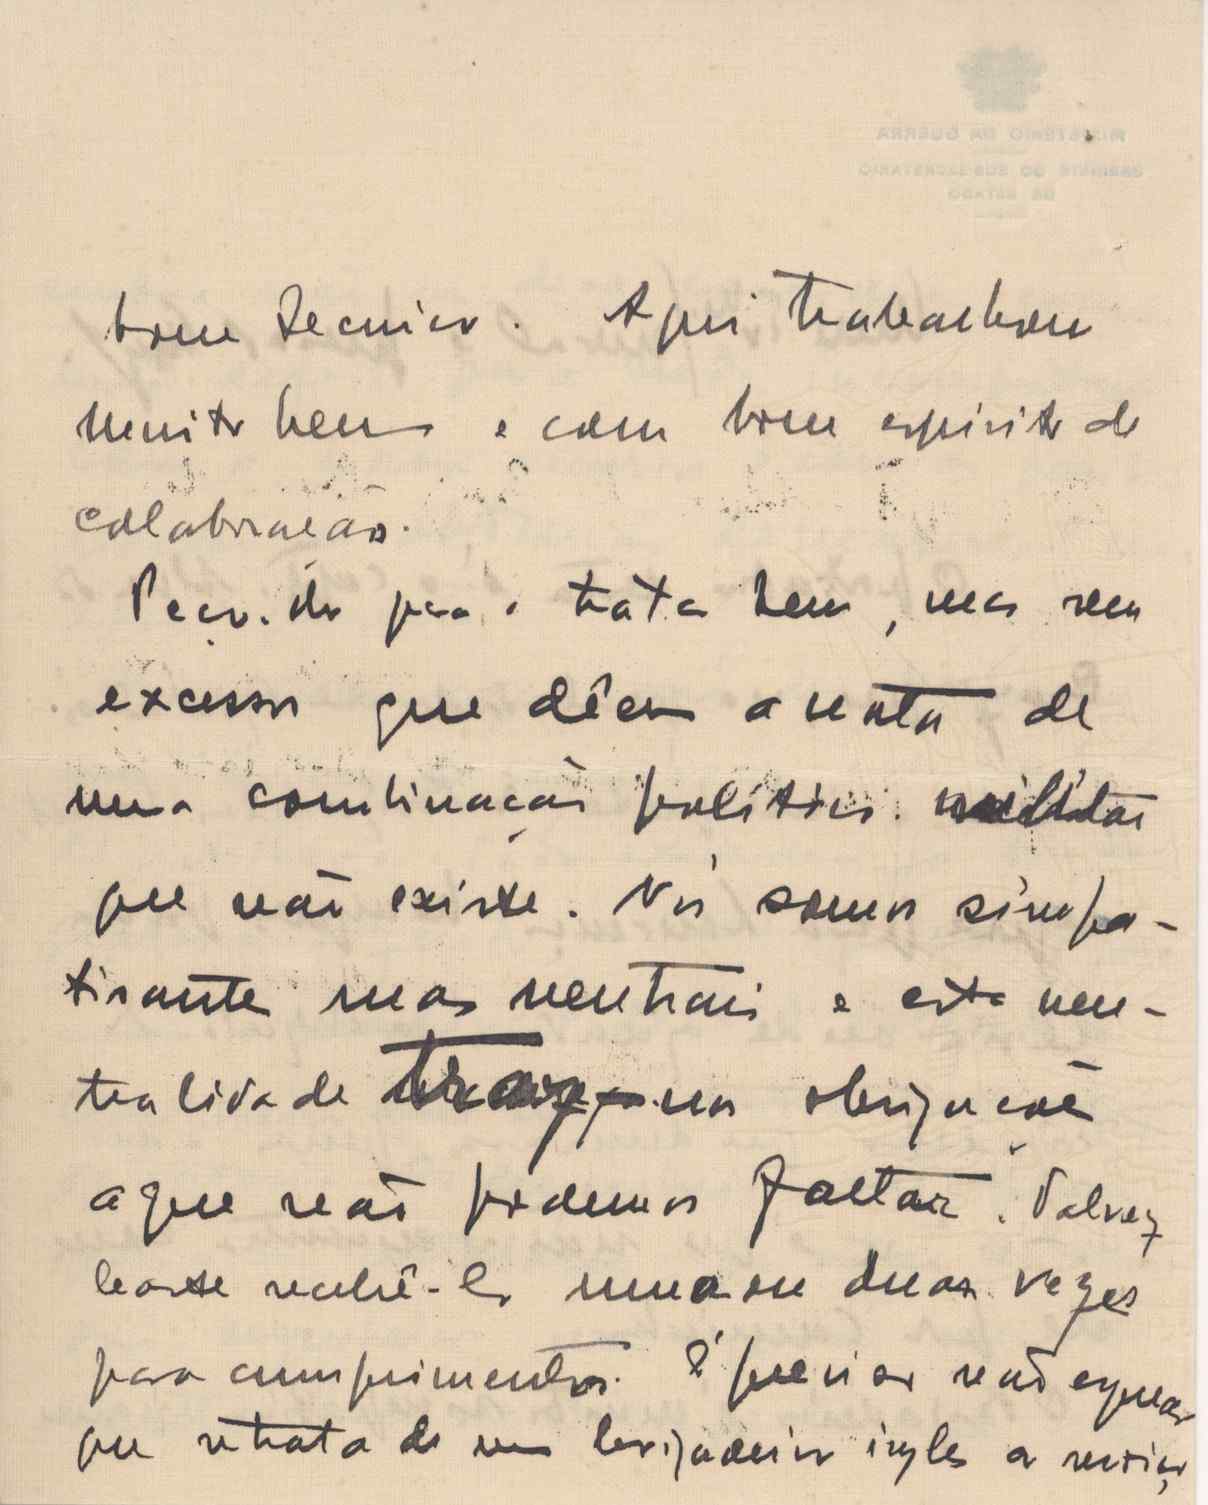 MINISTÉRIO DA GUERRA
GABINETE DO SUB-SECRETARIO
DE ESTADO
bom tecnico. Aqui trabalhou
muito bem e com bom espirito de
colaboração.
Peço-do para o tratar bem, mas sem
excessos que dêem a nota de
uma combinação politico-militar
que não existe. Nós somos simpa-
tisantes mas neutrais e esta neu-
tralidade traz-nos obrigações
a que não podemos faltar. Talvez
baste recebê-lo uma ou duas vezes
para cumprimentos. É preciso não esquecer
que se trata de um brigadeiro inglês a serviço